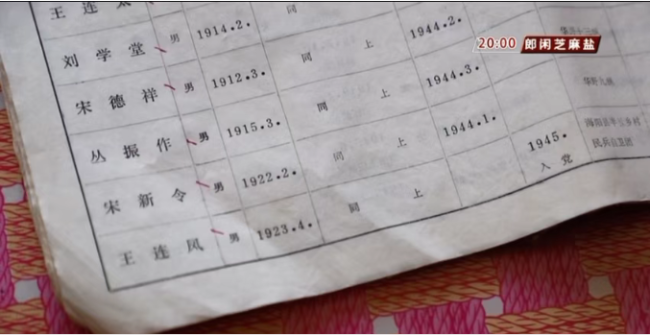 王连
刘学堂 男 1914.2. 同上 1944.2.
宋德祥 男 1912.3. 同上 1944.3.
丛振作 男 1915.3. 同上 1944.1.
宋新令 男 1922.2. 同上 1945.入党
王连凤 男 1923.4. 同上
民兵
20:00 郎闲芝麻盐